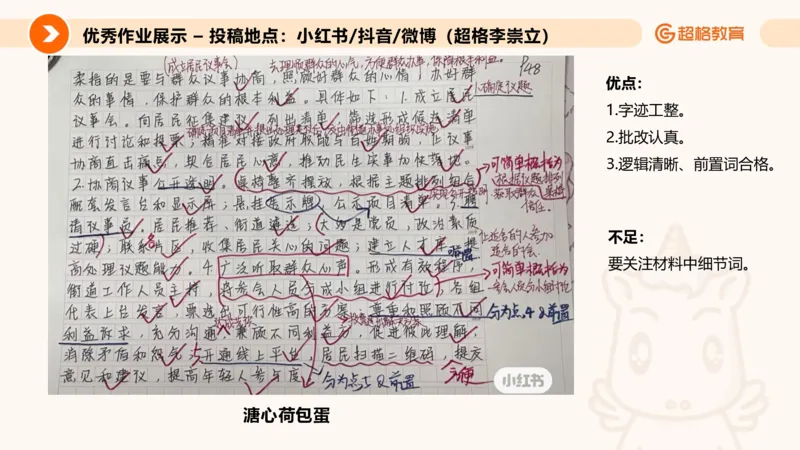 优秀作业展示 – 投稿地点：小红书/抖音/微博（超格李崇立）
超格教育
（成立居民议事会）
P48
柔指的是要与群众议事协商，照顾好群众的心情，办好群
众的事情，保护群众的根本利益。具体如下：1.成立居民
议事会。向居民征集建议，列出清单，筛选形成候选清单
进行讨论和投票；精准对接政府职能与百姓期盼，让议事
协商直击痛点，契合居民心意，推动民生实事加快落地。
2.协商议事公开透明。桌椅整齐摆放，根据主题排列组合
配套发言台和显示屏；悬挂告示牌，公示项目清单。3.聘
请议事员。居民推荐、街道遴选；大多是党员，政治素质
过硬；联系片区，收集居民关心的问题；建立人才库，提
高处理议题能力。4.广泛听取群众心声。形成有效程序，
街道工作人员主持，将参会人员分成小组进行讨论，各组
代表上台发言，票选出可行性高的方案。尊重和照顾不同
利益诉求，充分沟通，兼顾不同利益方，促进彼此理解，
消除矛盾和怨气。5.开通线上平台。居民扫描二维码，提交
意见和建议，提高年轻人参与度。
可简单概括为
根据议题排列
可简单概括为
分为点4&前置
分为点5&前置
方便
小红书
溏心荷包蛋
优点：
1.字迹工整。
2.批改认真。
3.逻辑清晰、前置词合格。
不足：
要关注材料中细节词。